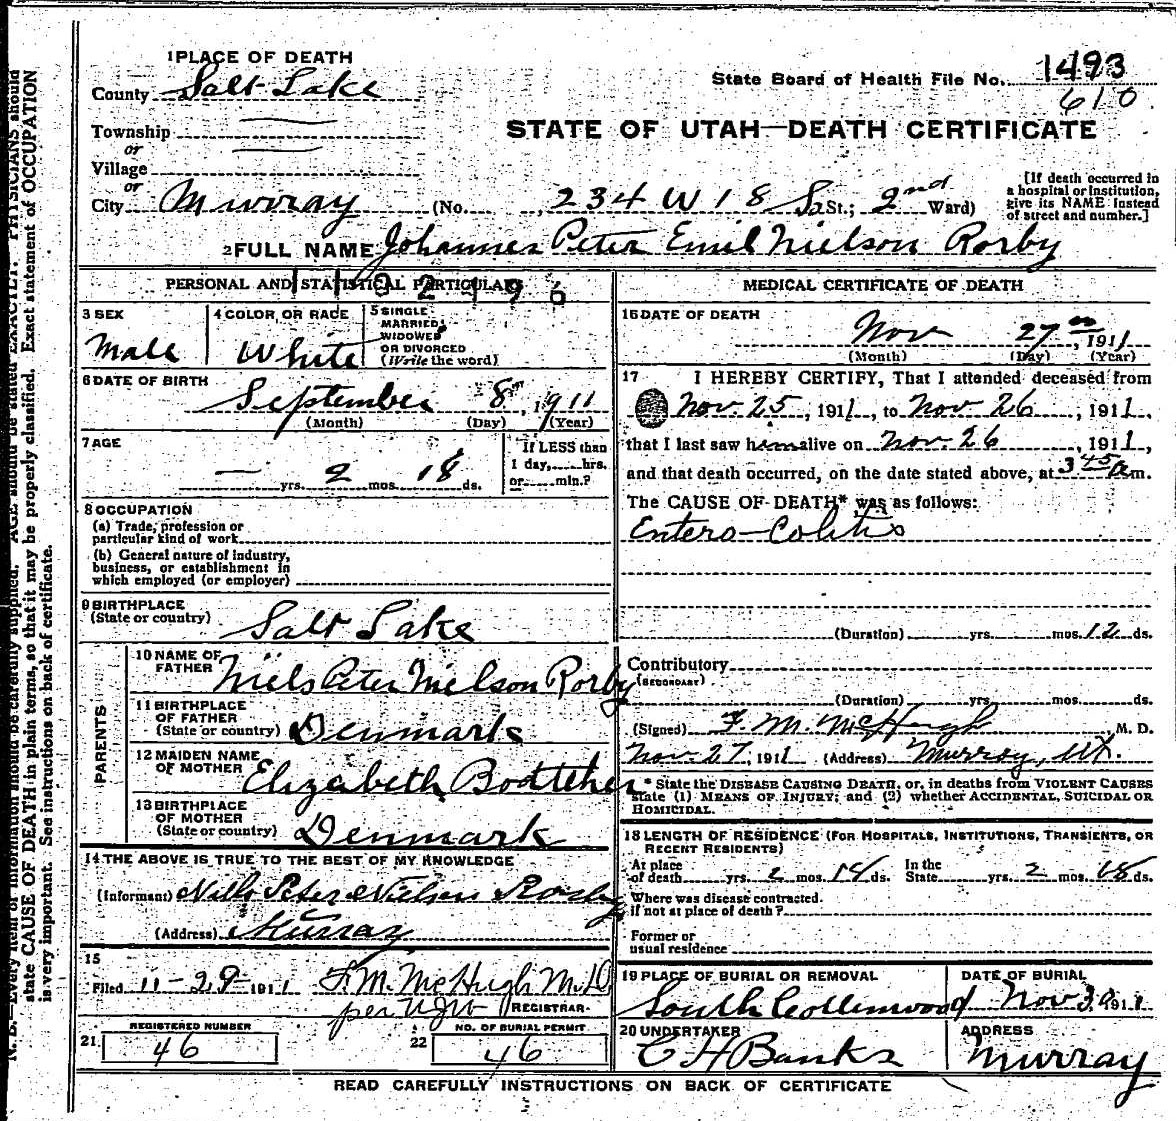 1 PLACE OF DEATH
County Salt Lake
State Board of Health File No. 1493
610
Township
or
STATE OF UTAH—DEATH CERTIFICATE
Village
or
City Murray (No. 234 W 18 So St.; 2nd Ward)
[If death occurred in a hospital or institution, give its NAME instead of street and number.]
2 FULL NAME Johannes Peter Emil Nielson Rorby
PERSONAL AND STATISTICAL PARTICULARS
3 SEX
Male
4 COLOR OR RACE
White
5 SINGLE
MARRIED
WIDOWED
OR DIVORCED
(Write the word)
6 DATE OF BIRTH
September 8, 1911
(Month) (Day) (Year)
7 AGE
— yrs. 2 mos. 18 ds.
If LESS than
1 day, hrs.
or min.?
8 OCCUPATION
(a) Trade, profession or
particular kind of work
(b) General nature of industry,
business, or establishment in
which employed (or employer)
9 BIRTHPLACE
(State or country) Salt Lake
PARENTS
10 NAME OF
FATHER Niels Peter Nielson Rorby
11 BIRTHPLACE
OF FATHER
(State or country) Denmark
12 MAIDEN NAME
OF MOTHER Elizabeth Bodtcher
13 BIRTHPLACE
OF MOTHER
(State or country) Denmark
14 THE ABOVE IS TRUE TO THE BEST OF MY KNOWLEDGE
(Informant) Peter Nielsen
(Address) Murray
15
Filed 11-29 1911 F. M. McHugh M.D
per
REGISTRAR.
REGISTERED NUMBER
21 46
NO. OF BURIAL PERMIT
22 46
MEDICAL CERTIFICATE OF DEATH
16 DATE OF DEATH
Nov 27, 1911
(Month) (Day) (Year)
17 I HEREBY CERTIFY, That I attended deceased from
Nov. 25, 1911, to Nov. 26, 1911,
that I last saw him alive on Nov. 26, 1911,
and that death occurred, on the date stated above, at 3 45 a m.
The CAUSE OF DEATH* was as follows:
Entero-Colitis
(Duration) yrs. mos. 12 ds.
Contributory
(SECONDARY)
(Duration) yrs. mos. ds.
(Signed) F. M. McHugh M. D.
Nov. 27, 1911 (Address) Murray, Ut.
* State the DISEASE CAUSING DEATH, or, in deaths from VIOLENT CAUSES
state (1) MEANS OF INJURY; and (2) whether ACCIDENTAL, SUICIDAL OR
HOMICIDAL.
18 LENGTH OF RESIDENCE (FOR HOSPITALS, INSTITUTIONS, TRANSIENTS, OR
RECENT RESIDENTS)
At place
of death yrs. 2 mos. ds. In the
State yrs. 2 mos. 18 ds.
Where was disease contracted.
if not at place of death?
Former or
usual residence
19 PLACE OF BURIAL OR REMOVAL
South Cottonwood
DATE OF BURIAL
Nov 30, 1911
20 UNDERTAKER
C H Banks
ADDRESS
Murray
READ CAREFULLY INSTRUCTIONS ON BACK OF CERTIFICATE
N. B.—Every item of information should be carefully supplied. AGE should be stated EXACTLY. PHYSICIANS should
state CAUSE OF DEATH in plain terms, so that it may be properly classified. Exact statement of OCCUPATION
is very important. See instructions on back of certificate.